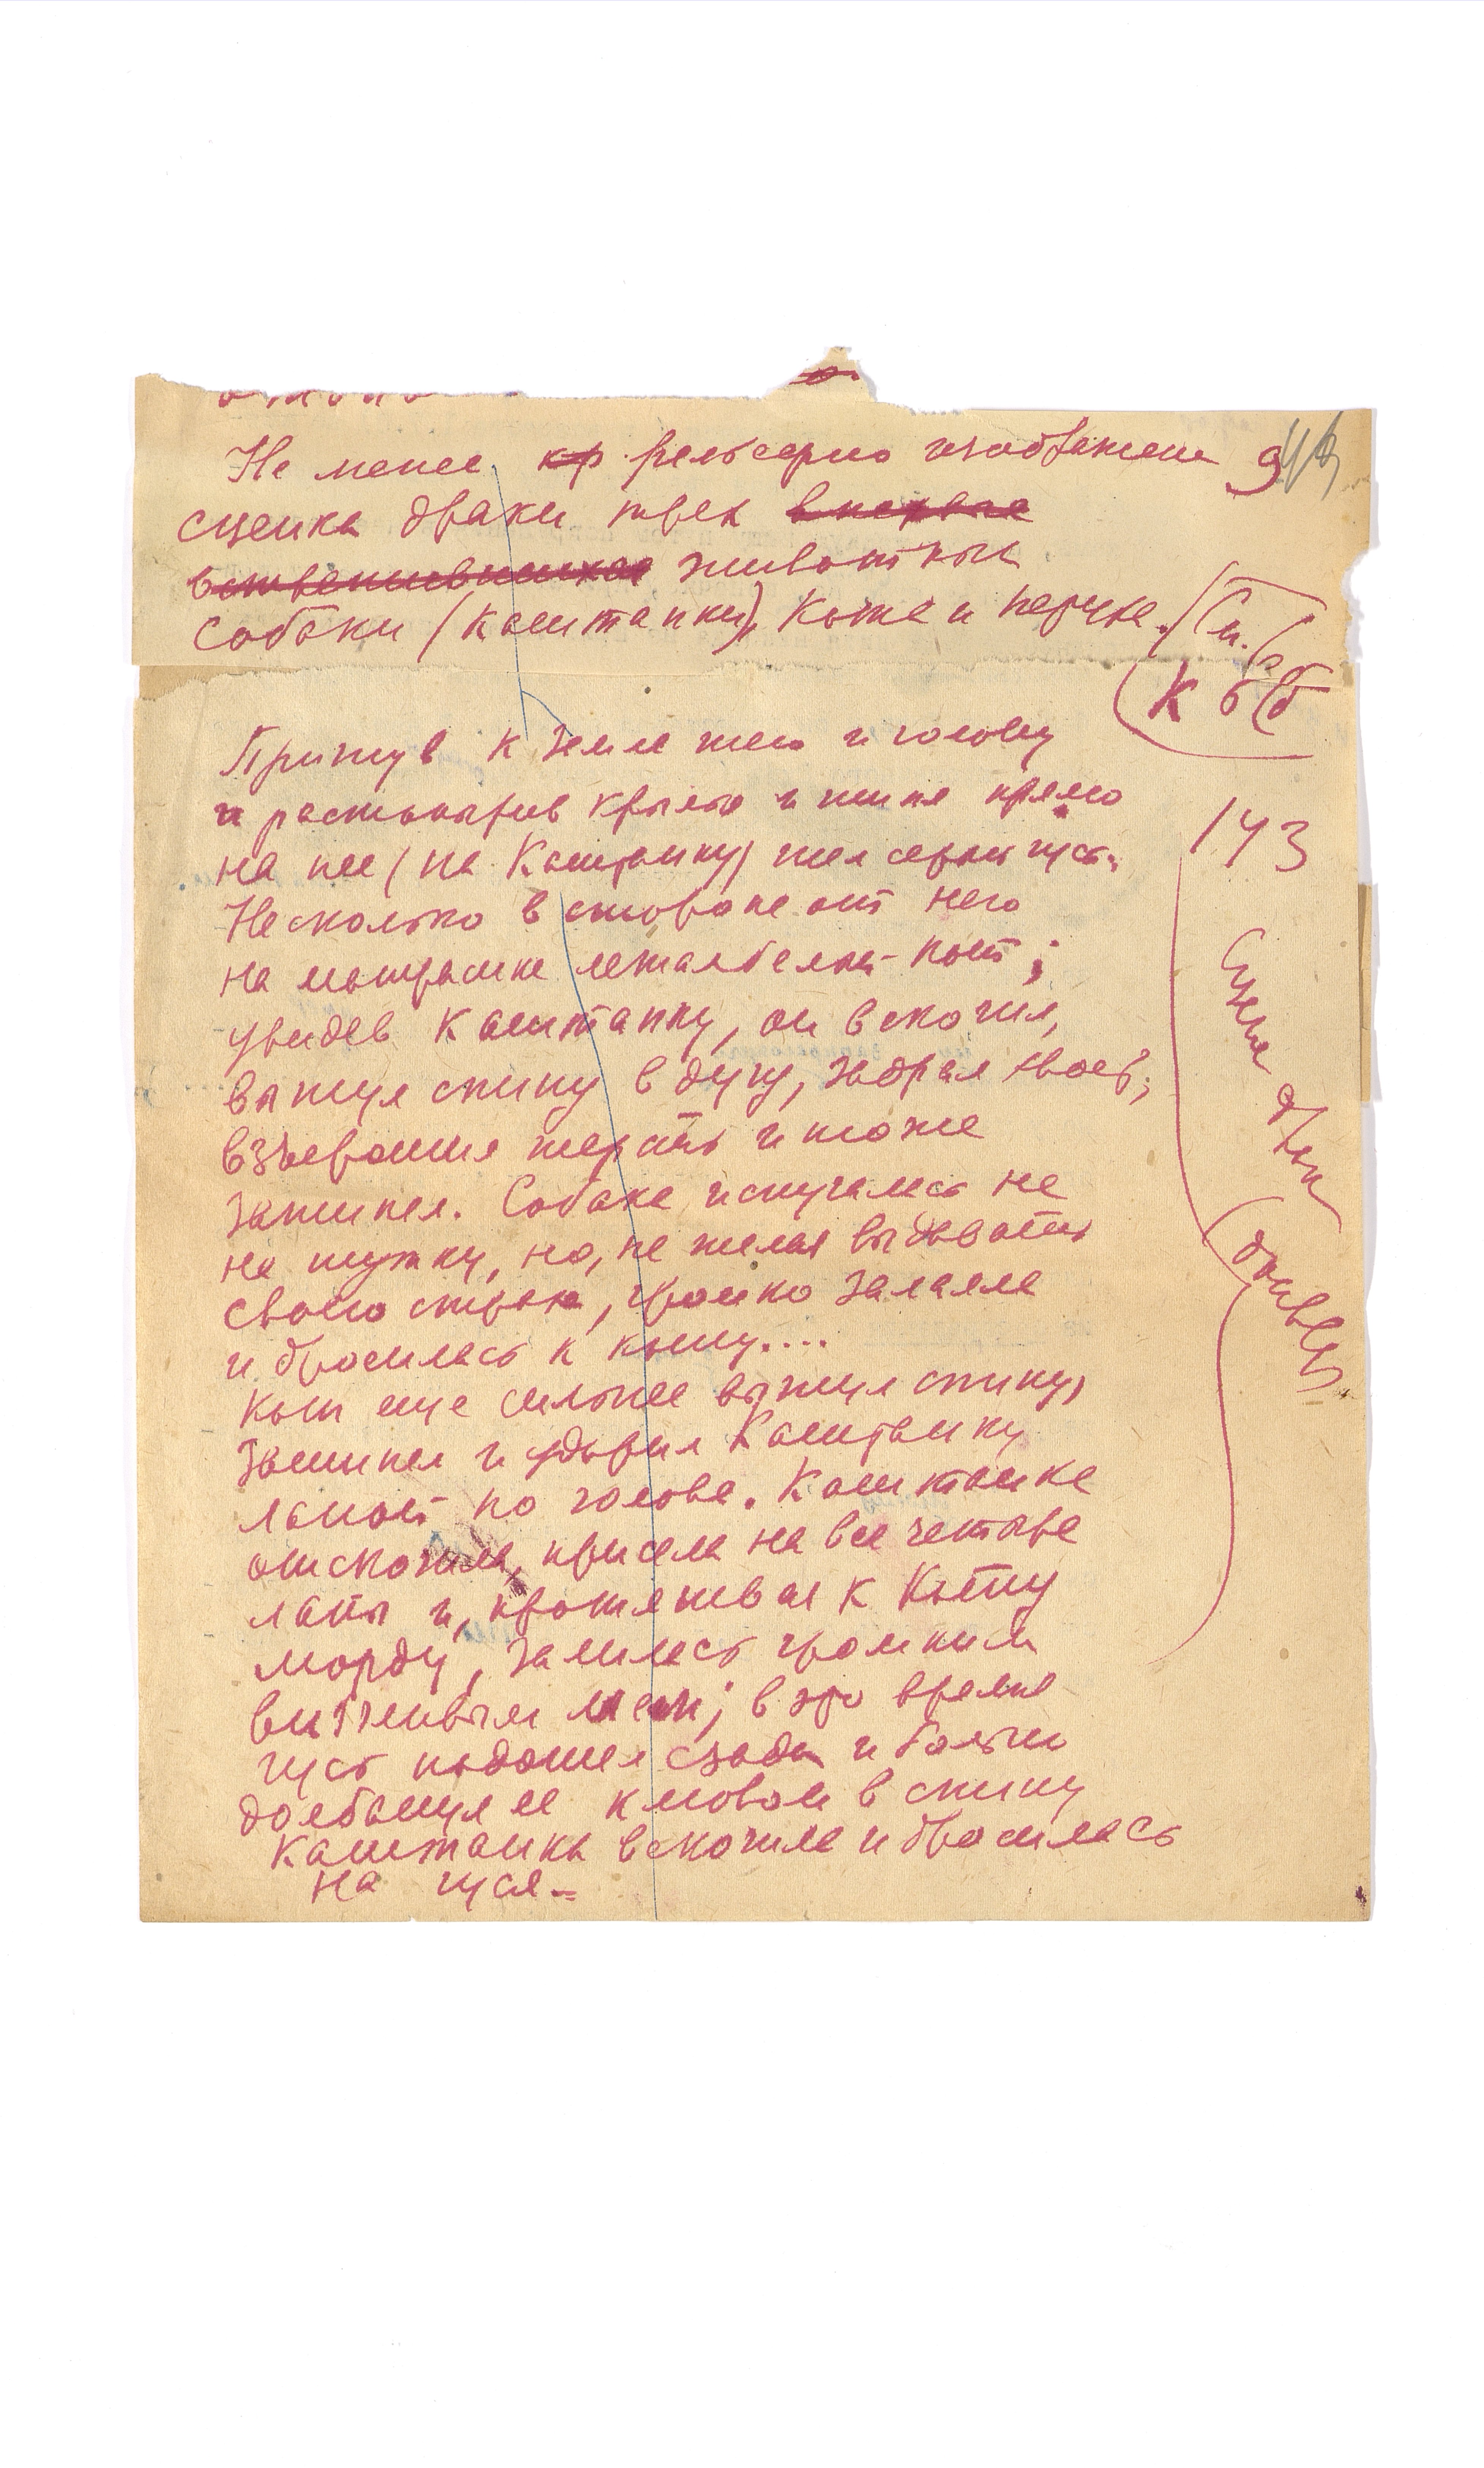 Не менее кр рельефно изображена 9
сценка драки трех впервые
встретившихся животных
собаки (Каштанки), кота и
(См.
К бб
Пригнув к земле шею и голову
и растопырив крылья и шипя прямо
на нее (на Каштанку) шел серый гусь.
Несколько в стороне от него
на матрасике лежал белый кот;
увидев Каштанку, он вскочил,
выгнул спину в дугу, задрал хвост,
взъерошил шерсть и тоже
зашипел. Собака испугалась не
на шутку, но, не желая выдавать
своего страха, громко залаяла
и бросилась к коту....
Кот еще сильнее выгнул спину,
зашипел и ударил Каштанку
лапой по голове. Каштанка
отскочила, присела на все четыре
лапы и, протягивая к коту
морду, залилась громким
визгливым лаем; в это время
гусь подошел сзади и больно
долбанул ее клювом в спину
Каштанка вскочила и бросилась
на гуся
143
Сцена